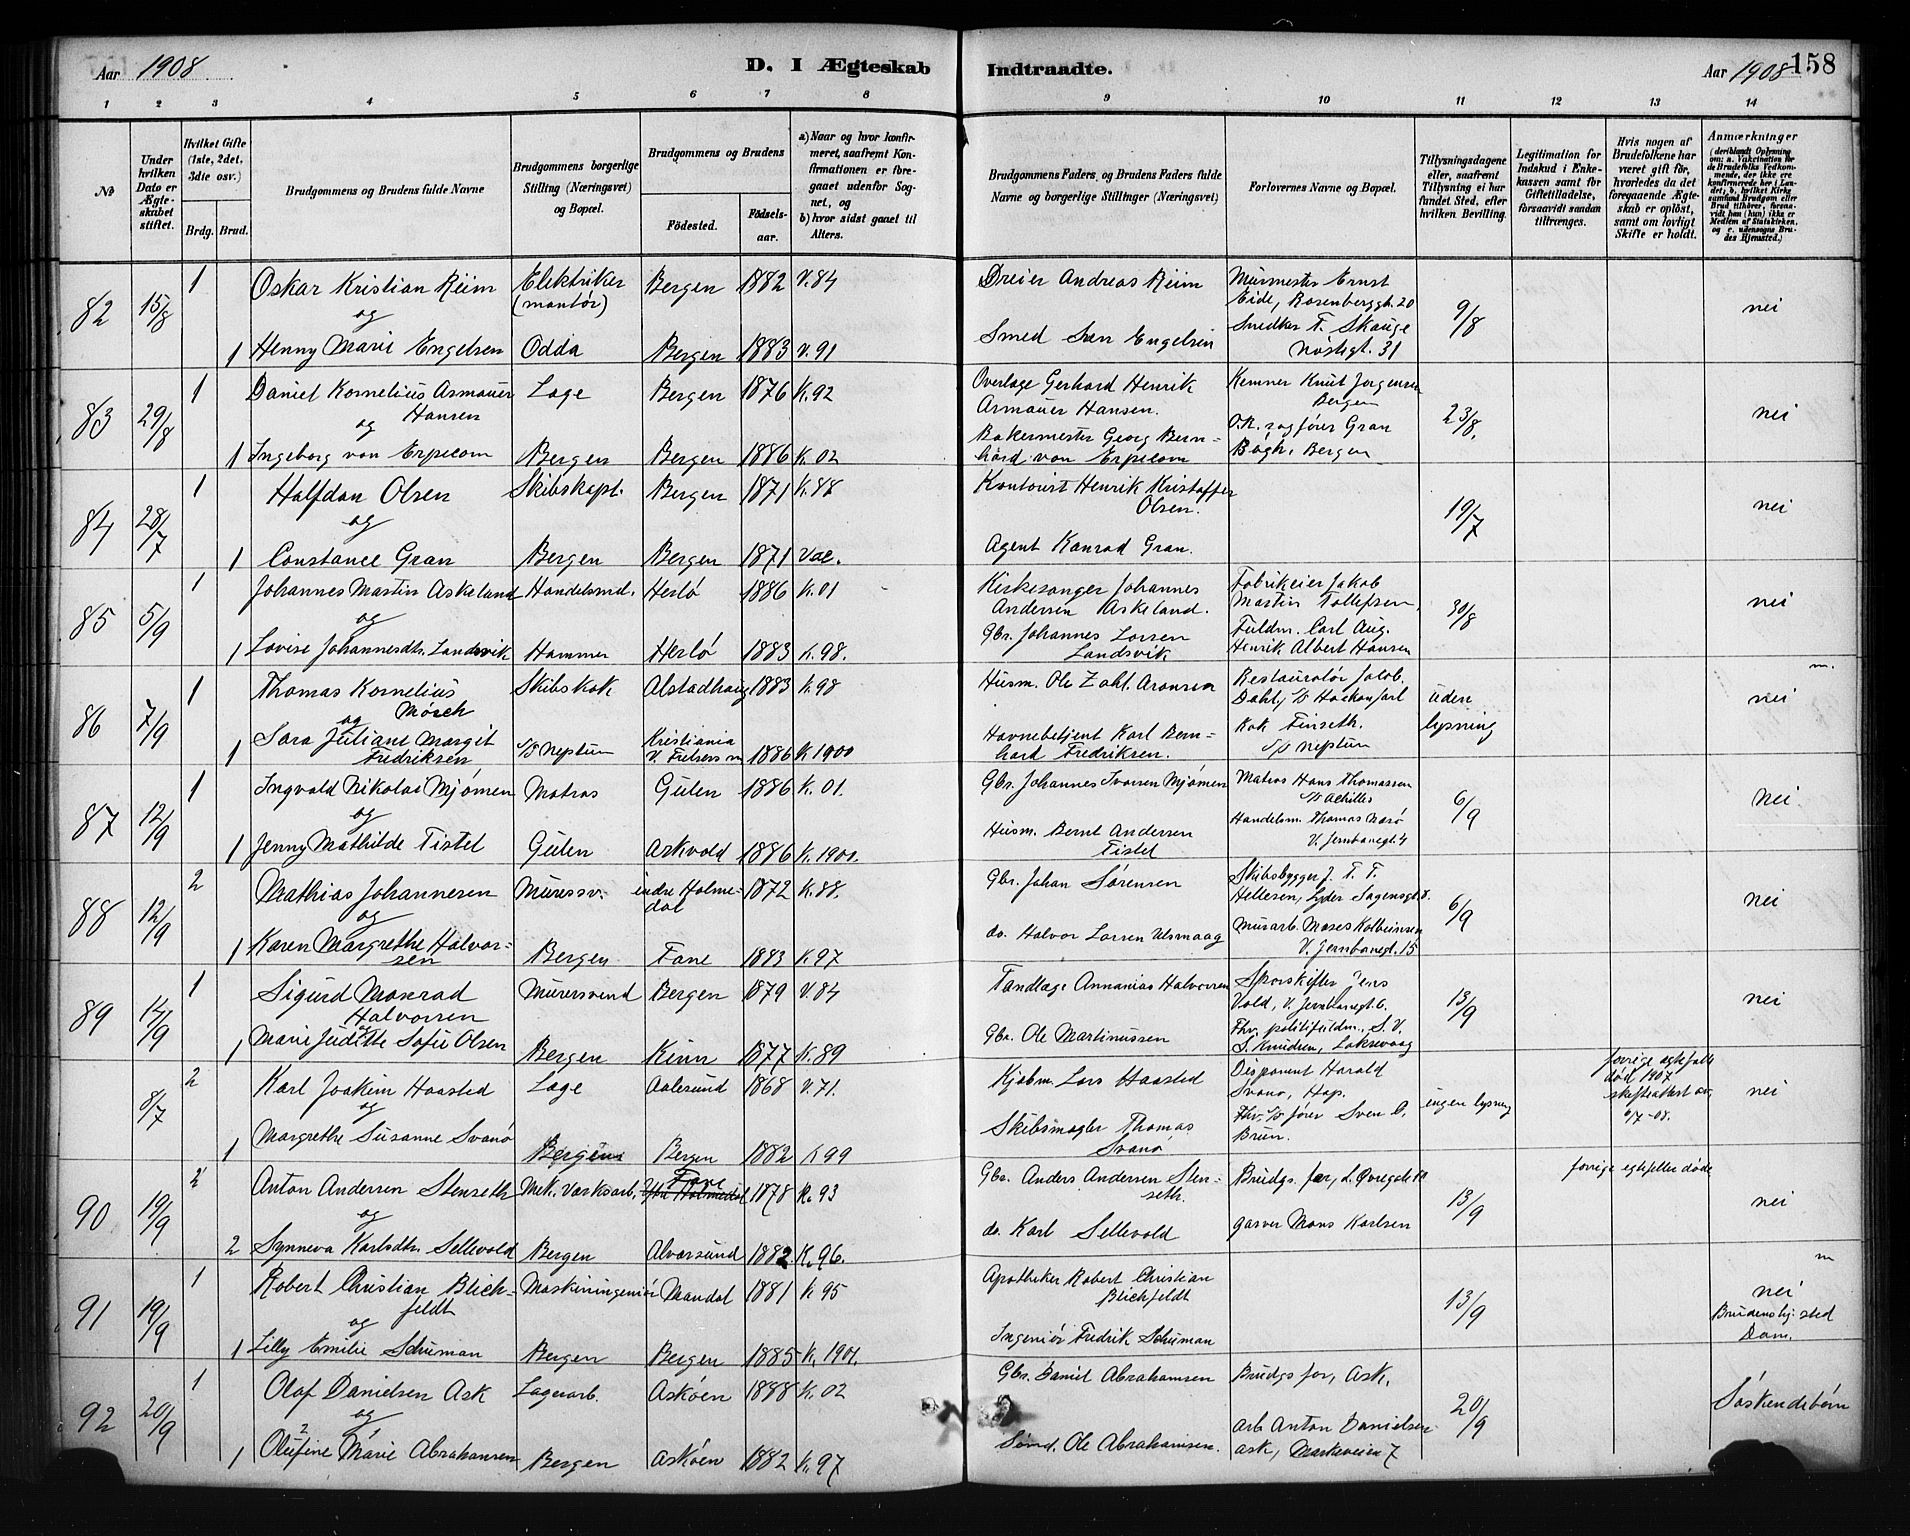 Aar 1908
D. I Ægteskab
Indtraadte.
Aar 1908
158
1 2 3 4 5 6 7 8 9 10 11 12 13 14
No
Under hvilken Dato er Ægteskabet stiftet.
Hvilket Gifte (1ste, 2det, 3die osv.)
Brdg. Brud.
Brudgommens og Brudens fulde Navne
Brudgommens borgerlige Stilling (Næringsvei) og Bopæl.
Brudgommens og Brudens
Fødested.
Fødselsaar.
a) Naar og hvor konfirmeret, saafremt Konfirmationen er foregaaet udenfor Sognet, og
b) hvor sidst gaaet til Alters.
Brudgommens Faders og Brudens Faders fulde Navne og borgerlige Stillinger (Næringsvei)
Forlovernes Navne og Bopæl.
Tillysningsdagene eller, saafremt Tillysning ei har fundet Sted, efter hvilken Bevilling.
Legitimation for Indskud i Enkekassen samt for Giftetilladelse, forsaavidt saadan tiltrænges.
Hvis nogen af Brudefolkene har været gift før, hvorledes da det foregaaende Ægteskab er opløst, samt om lovligt Skifte er holdt.
Anmærkninger
82 15/8 1 Oskar Kristian Reim Elektriker Bergen 1882 V. 84 Dreier Andreas Reim Murmester Ernst
og (montør) Eide, Rosenberggt. 20 9/8 nei
1 Henny Marie Engelsen Odda Bergen 1883 V. 91 Smed Sven Engelsen Snedker T. Skauge
Nøstegt. 31
83 29/8 1 Daniel Kornelius Armauer Læge Bergen 1876 K. 92 Overlæge Gerhard Henrik Kemner Knut Jørgensen
Hansen Armauer Hansen. Bergen 23/8. nei
og Bakermester Georg Bern= O.R. sagfører Gran
1 Ingeborg von Erpecom Bergen Bergen 1886 K. 02 hard von Erpecom Bøgh, Bergen
84 28/7 1 Halfdan Olsen Skibskapt. Bergen 1871 K. 87 Kontorist Henrik Kristoffer
og Olsen. 19/7 nei
1 Constance Gran Bergen Bergen 1871 Vac. Agent Konrad Gran.
85 5/9 1 Johannes Martin Askeland Handelsmd. Herlø 1886 K. 01 Kirkesanger Johannes Fabrikeier Jakob
og Andersen Askeland. Martin Tollefsen, 30/8 nei
Gbr. Johannes Larsen Fuldm. Carl Aug.
1 Lovise Johannesdtr. Landsvik Hammer Herlø 1883 K. 98. Landsvik Henrik Albert Hansen
m.
86 7/9 1 Thomas Kornelius Skibskok Alstadhaug 1883 K. 98 Husm. Ole Zahl. Aronsen Restauratør Jakob
Mørch Dahl, S/S Haakon Jarl uden nei
og Kok Finseth. lysning
1 Sara Juliane Margit S/S Neptun Kristiania Havnebetjent Karl Bern= S/S Neptun
Fredriksen 1886 K 1900 hard Fredriksen.
87 12/9 1 Ingvald Nikolai Mjømen Matros Gulen 1886 K. 01. Gbr. Johannes Ivarsen Mjømen Matros Hans Thomassen
og S/S Achilles 6/9 nei.
1 Jenny Mathilde Tistel Gulen Askvold 1886 K. 1901. Husm. Bernt Andersen Handelsm. Thomas Norø
Tistel V. Jernbanegt. 4
88 12/9 2 Mathias Johannesen Muressv. indre Holme= 1872 K. 88. Gbr. Johan Sørensen Skibsbygger J. T. T.
og dal Hellesen, Lyder Sagensgt. 8. 6/9 nei
1 Karen Margrethe Halvor= Bergen Fane 1883 K. 97 do. Halvor Larsen Ulsmaag Murarb. Moses Kolbeinsen
sen V. Jernbanegt. 15
89 14/9 1 Sigurd Monrad Murersvend Bergen 1879 V. 84 Tandlæge Annanias Halvorsen Sporskifter Jens
Halvorsen Vold, V. Jernbanegt. 6. 13/9 nei
og
1 Marie Juditte Sofie Olsen Bergen Kinn 1877 K. 89 Gbr. Ole Martinussen Fhv. politifuldm. S. V.
S. Knudsen, Laksevaag
8/7 2 Karl Joakim Haasted Læge Aalesund 1868 V. 71. Kjøbm. Lars Haasted Disponent Harald ingen lysning forrige egtefælle
og Svanø, Hop. død 1907 nei
1 Margrethe Susanne Svanø Bergen Bergen 1882 K 99 Skibsmægler Thomas Fhv. S/S fører Sven O. skifteattest av
Svanø Brun. 6/7-08.
90 19/9 2 Anton Andersen Stenseth Mek. Værksarb. Fane 1878 K. 93 Gbr. Anders Andersen Sten= Brudgs. far, forrige egtefeller døde
og seth. 13/9 nei
2 Synneva Karlsdtr. Sellevold Bergen Alversund 1882 K. 96. do. Karl Sellevold garver Mons Karlsen
m
91 19/9 1 Robert Christian Blich= Maskiningeniør Mandal 1881 K 95 Apotheker Robert Christian
feldt Blichfeldt 13/9 nei
og Brudens hj. sted
1 Lilly Emilie Schuman Bergen Bergen 1885 K. 1901. Ingeniør Fredrik Schuman Dom.
92 20/9 1 Olaf Danielsen Ask Lagerarb. Askøen 1888 K. 02 Gbr. Daniel Abrahamsen Brudgs far, Ask.
og 20/9 Søskendebørn
1 Olufine Marie Abrahamsen Bergen Askøen 1882 K. 97 Ole Abrahamsen. arb. Anton Danielsen
Ask, Markeveien 7